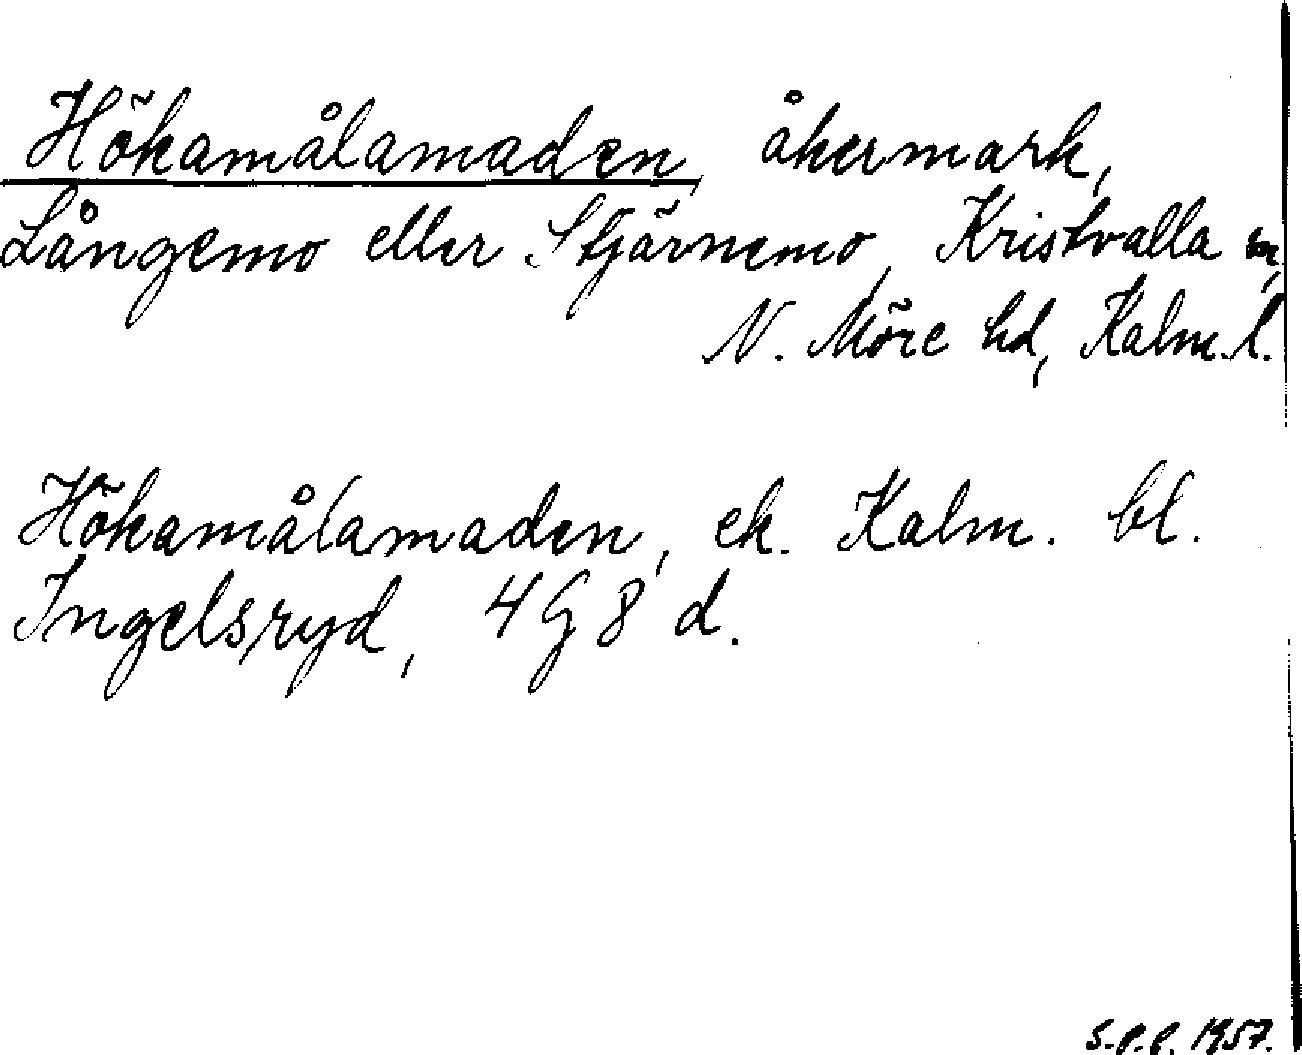 Hökamålamaden, åkermark,
Långemo eller Stjärnemo, Kristvalla sn,
N. Möre hd, Kalm. l.
Hökamålamaden, ek. Kalm. bl.
Ingelsryd, 4G8d.
S.P.P. 1957.